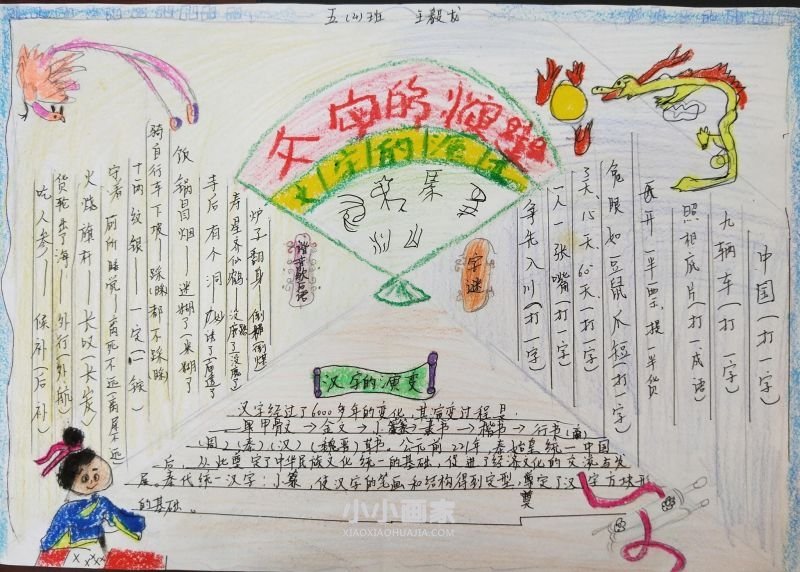 五(2)班 王毅龙
文字的演
文字的演
谐音歇后语
字谜
炉子翻身——倒霉(倒煤)
寿星养仙鹤——没
寺后有个洞——
饭锅冒烟——迷糊了(米糊了)
骑自行车下坡——踩踩都不踩踩
十两纹银——一定(一锭)
守着厕所睡觉——离死不远(离屎不远)
火烧旗杆——长叹(长炭)
货轮来了海——外行(外航)
吃人参——候补(后补)
中国(打一字)
九辆车(打一字)
照相底片(打一成语)
一半
兔
7天、15天、60天(打一字)
一人一张嘴(打一字)
争先入川(打一字)
汉字的演变
汉字经过了6000多年的变化,其演变过程是:
甲骨文→金文→小篆→隶书→楷书→行书(商)
(周)(秦)(汉)(魏晋)草书。公元前221年,秦始皇统一中国
后,从此奠定了中华民族文化统一的基础,促进了经济文化的交流与发
展。秦代统一汉字:小篆,使汉字的笔画和结构得到定型,奠定了汉字方块形
的基础。
小小画家
XIAOXIAOHUAJIA.COM